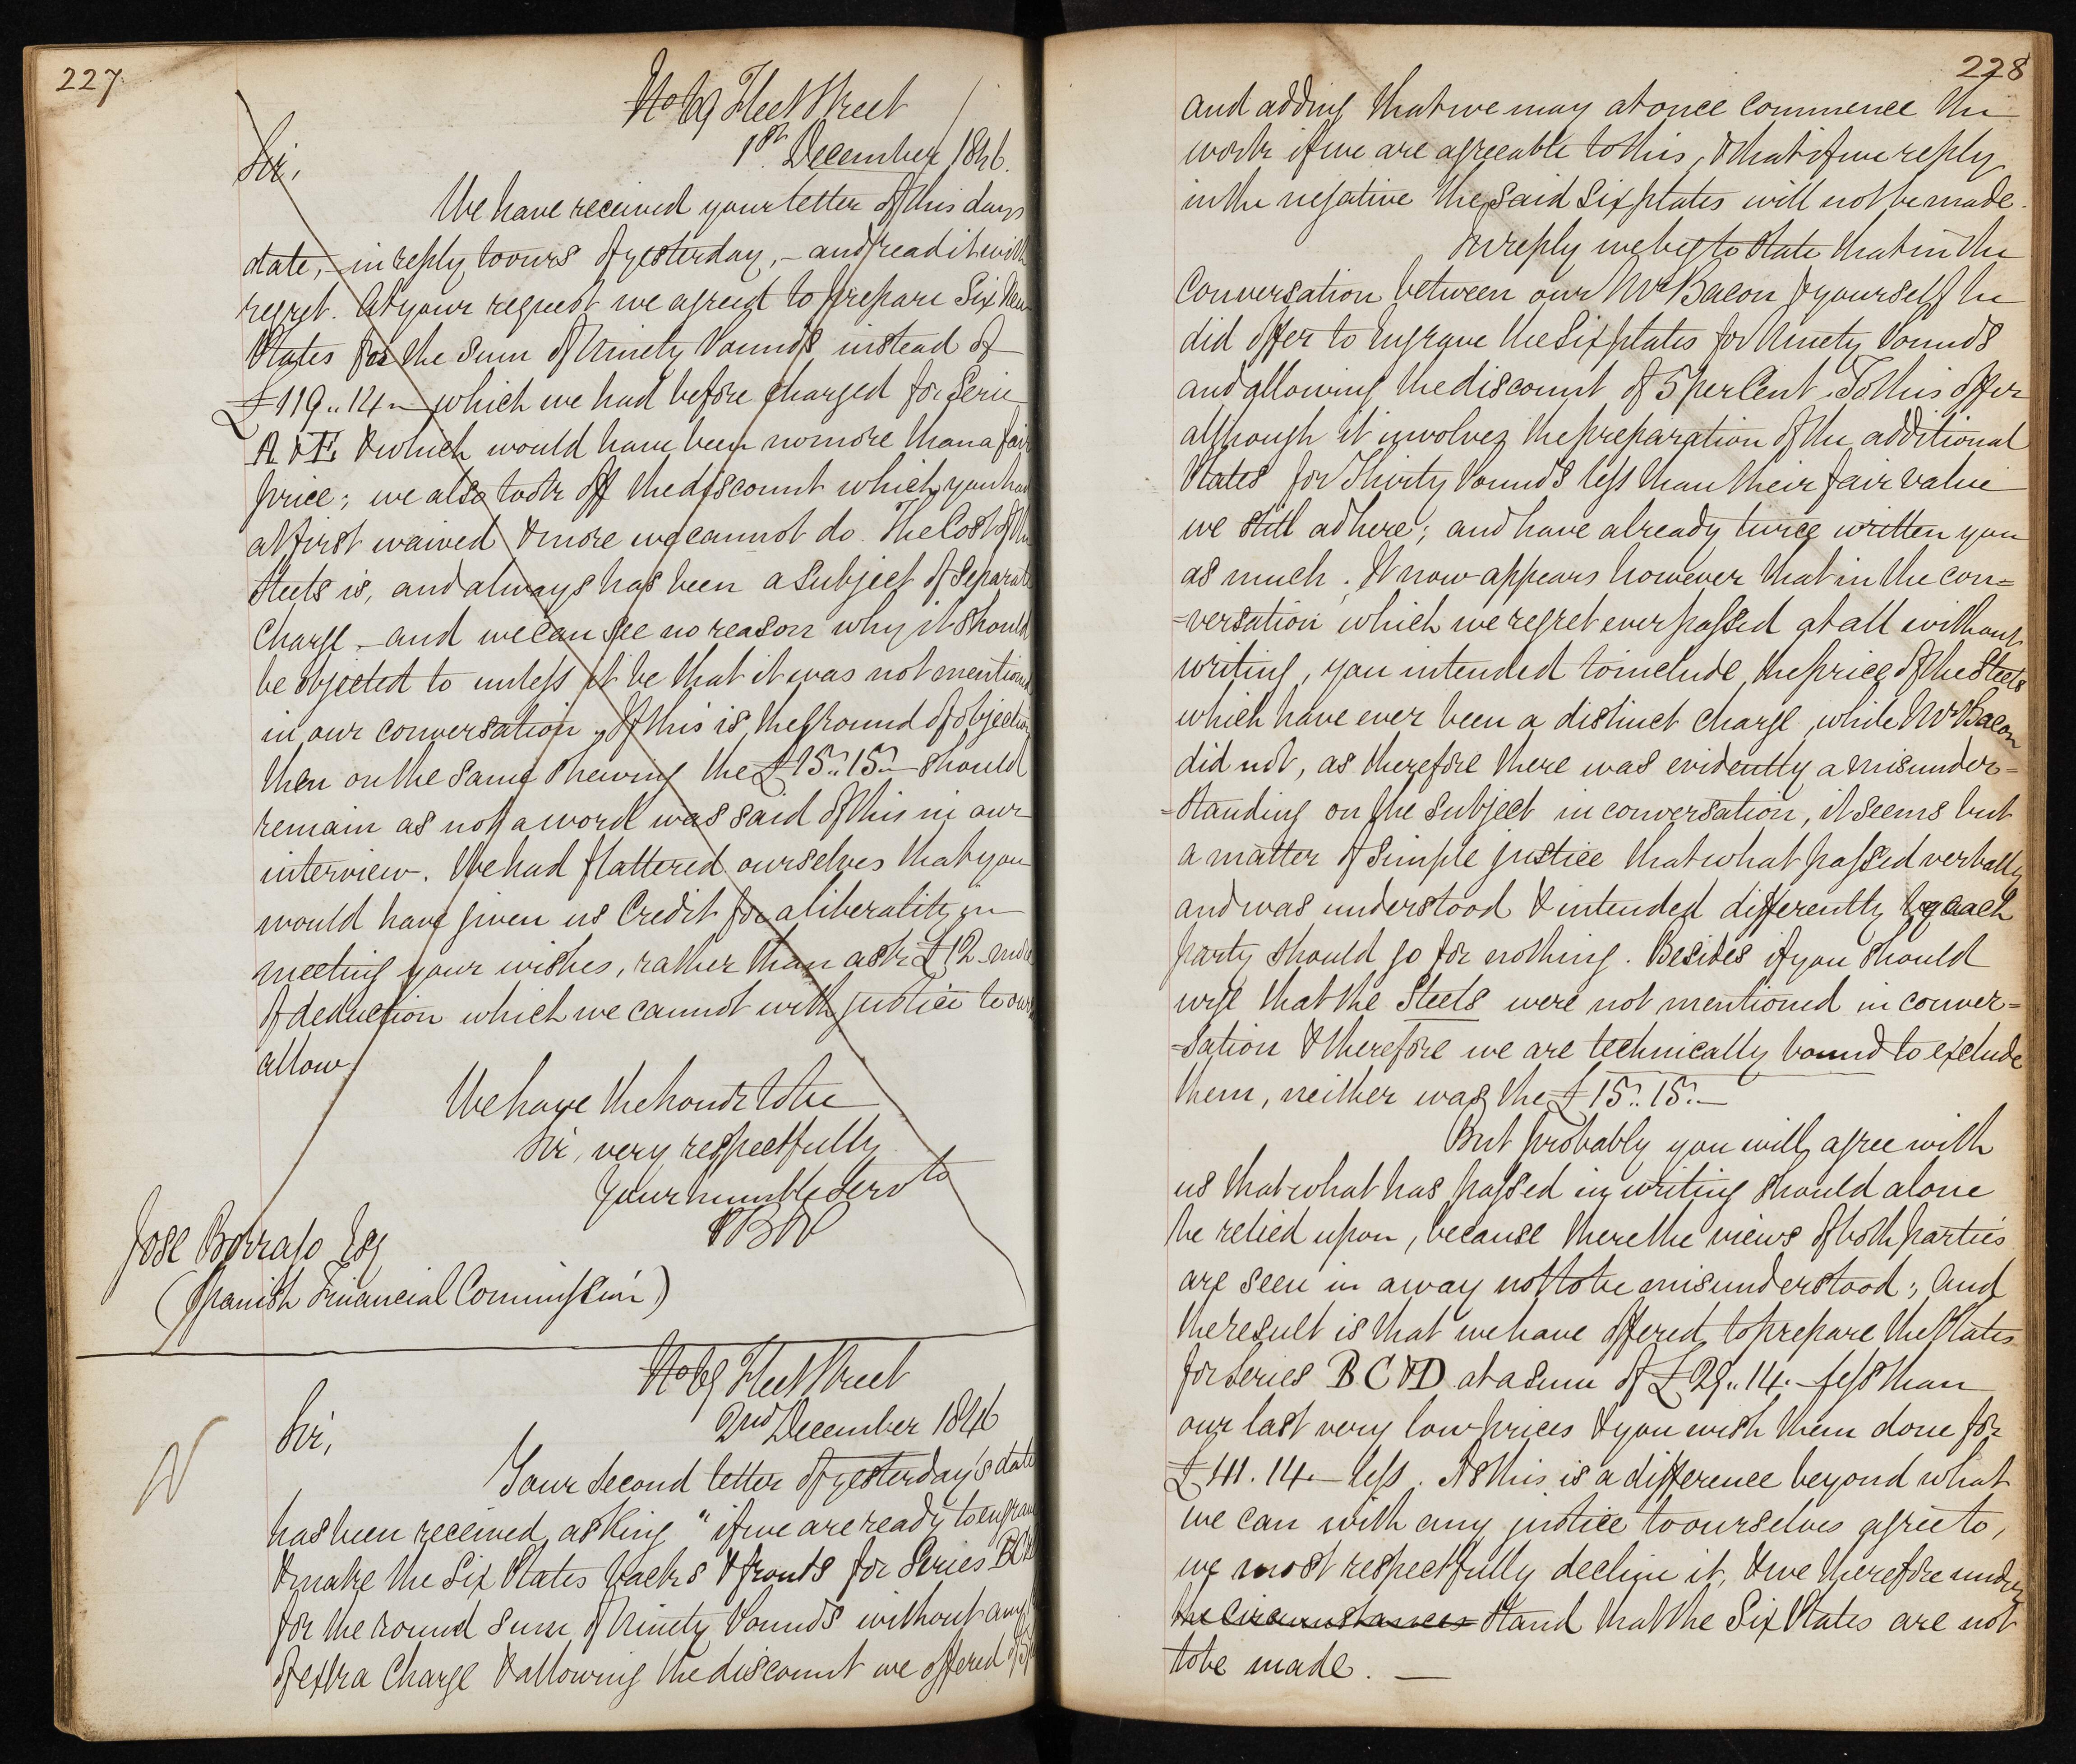 227
No 69 Fleet Street
1st December 1846.
Sir,
We have received your letter of this days
date, - in reply to ours of yesterday, - and read it with
regret. At your request we agreed to prepare Six New
Plates for the sum of Ninety Pounds instead of
£119..14.- which we had before charged for Serie
A & E. & which would have been no more than a fair
price; we also took off the discount which you had
at first waived & more we cannot do. The Cost of the
Steels is, and always has been a subject of separate
Charge - and we can see no reason why it should
be objected to unless it be that it was not mentioned
in our conversation, If this is the ground of objection
then on the same shewing the £15..15.- should
remain as not a word was said of this in our
interview. We had flattered ourselves that you
would have given us Credit for a liberality in
meeting your wishes, rather than ask £12 more
of deduction which we cannot with justice to
allow.
We have the honor to be
Sir, very respectfully
Your humble Servts
PB&P
Jose Borrajo Esq
(Spanish Financial Commission)
No 69 Fleet Street
2nd December 1846
Sir,
Your second letter of yesterday's date
has been received asking "if we are ready to engrave
& make the Six Plates backs & fronts for Series BC&D
for the round sum of Ninety Pounds without any
of extra Charge & allowing the discount we offered of 5 p
228
and adding that we may at once commence the
work if we are agreeable to this, & that if we reply
in the negative the said six plates will not be made.
In reply we beg to state that in the
Conversation between our Mr Bacon & yourself he
did offer to Engrave the Six plates for Ninety Pounds
and allowing the discount of 5 per Cent. To this offer
although it involves the preparation of the additional
Plates for Thirty Pounds less than their fair value
we still adhere; and have already twice written you
as much. It now appears however that in the con=
=versation which we regret ever passed at all without
writing, you intended to include the price of the Steels
which have ever been a distinct charge, while Mr Bacon
did not, as therefore there was evidently a misunder=
=standing on the subject in conversation, it seems but
a matter of simple justice that what passed verbally
and was understood & intended differently by each
party should go for nothing. Besides if you should
urge that the Steels were not mentioned in conver=
=sation & therefore we are technically bound to exclude
them, neither was the £15..15.-
But probably you will agree with
us that what has passed in writing should alone
be relied upon, because there the views of both parties
are seen in a way not to be misunderstood; and
the result is that we have offered to prepare the Plates
for Series B C & D at a sum of £29..14.- less than
our last very low prices & you wish them done for
£41.14.- less. As this is a difference beyond what
we can with any justice to ourselves agree to,
we most respectfully decline it, & we therefore under
the circumstances stand that the Six Plates are not
to be made. -